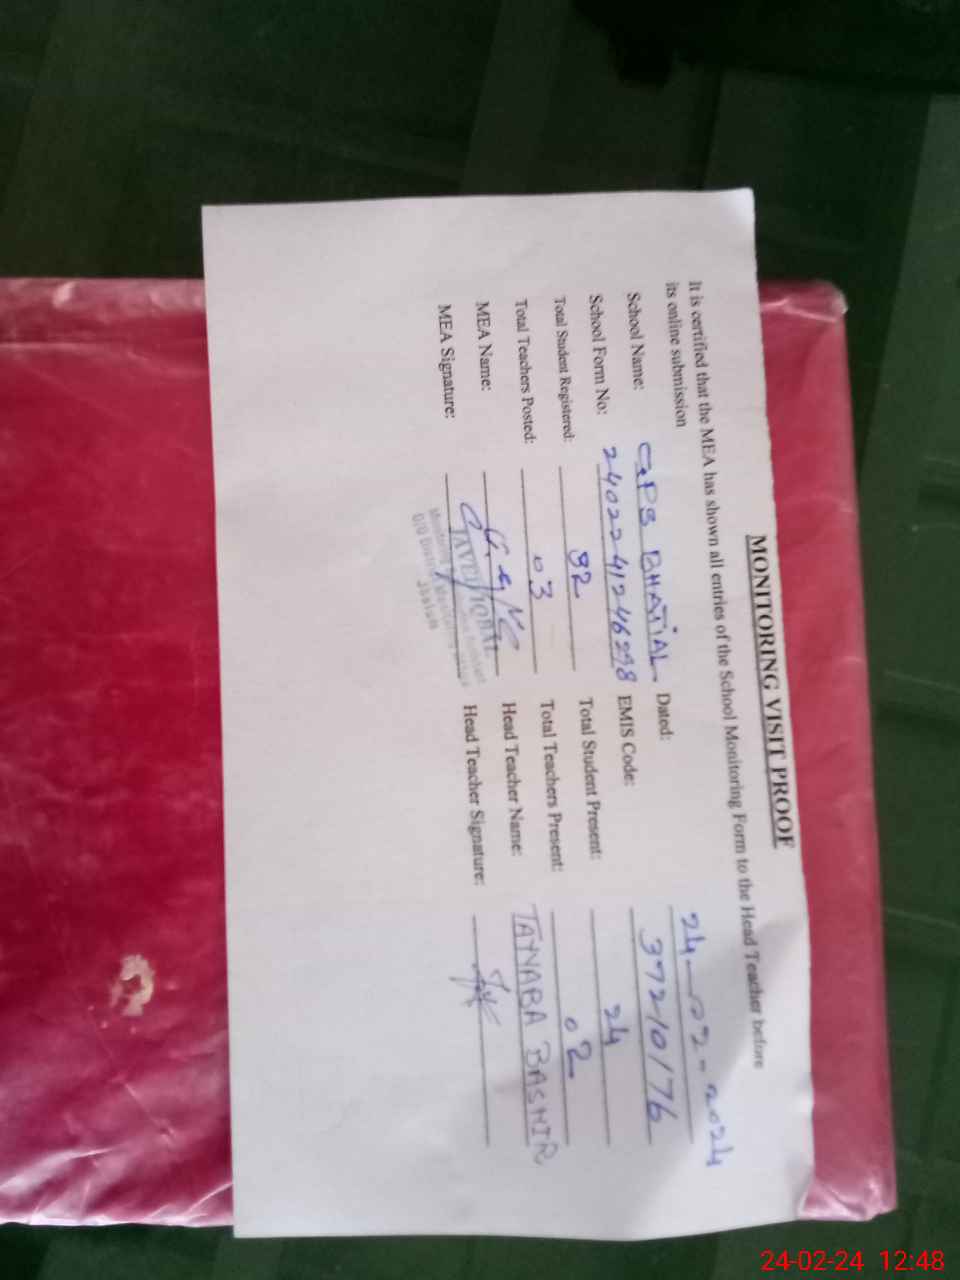 MONITORING VISIT PROOF
It is certified that the MEA has shown all entries of the School Monitoring Form to the Head Teacher before
its online submission
School Name: GPS BHATIAL Dated: 24-02-2024
School Form No: EMIS Code: 37210176
Total Student Registered: Total Student Present: 24
Total Teachers Posted: 03 Total Teachers Present: 02
MEA Name: Head Teacher Name: TAYYABA BASHIR
MEA Signature: Head Teacher Signature:
JAVED IQBAL
24-02-24 12:48